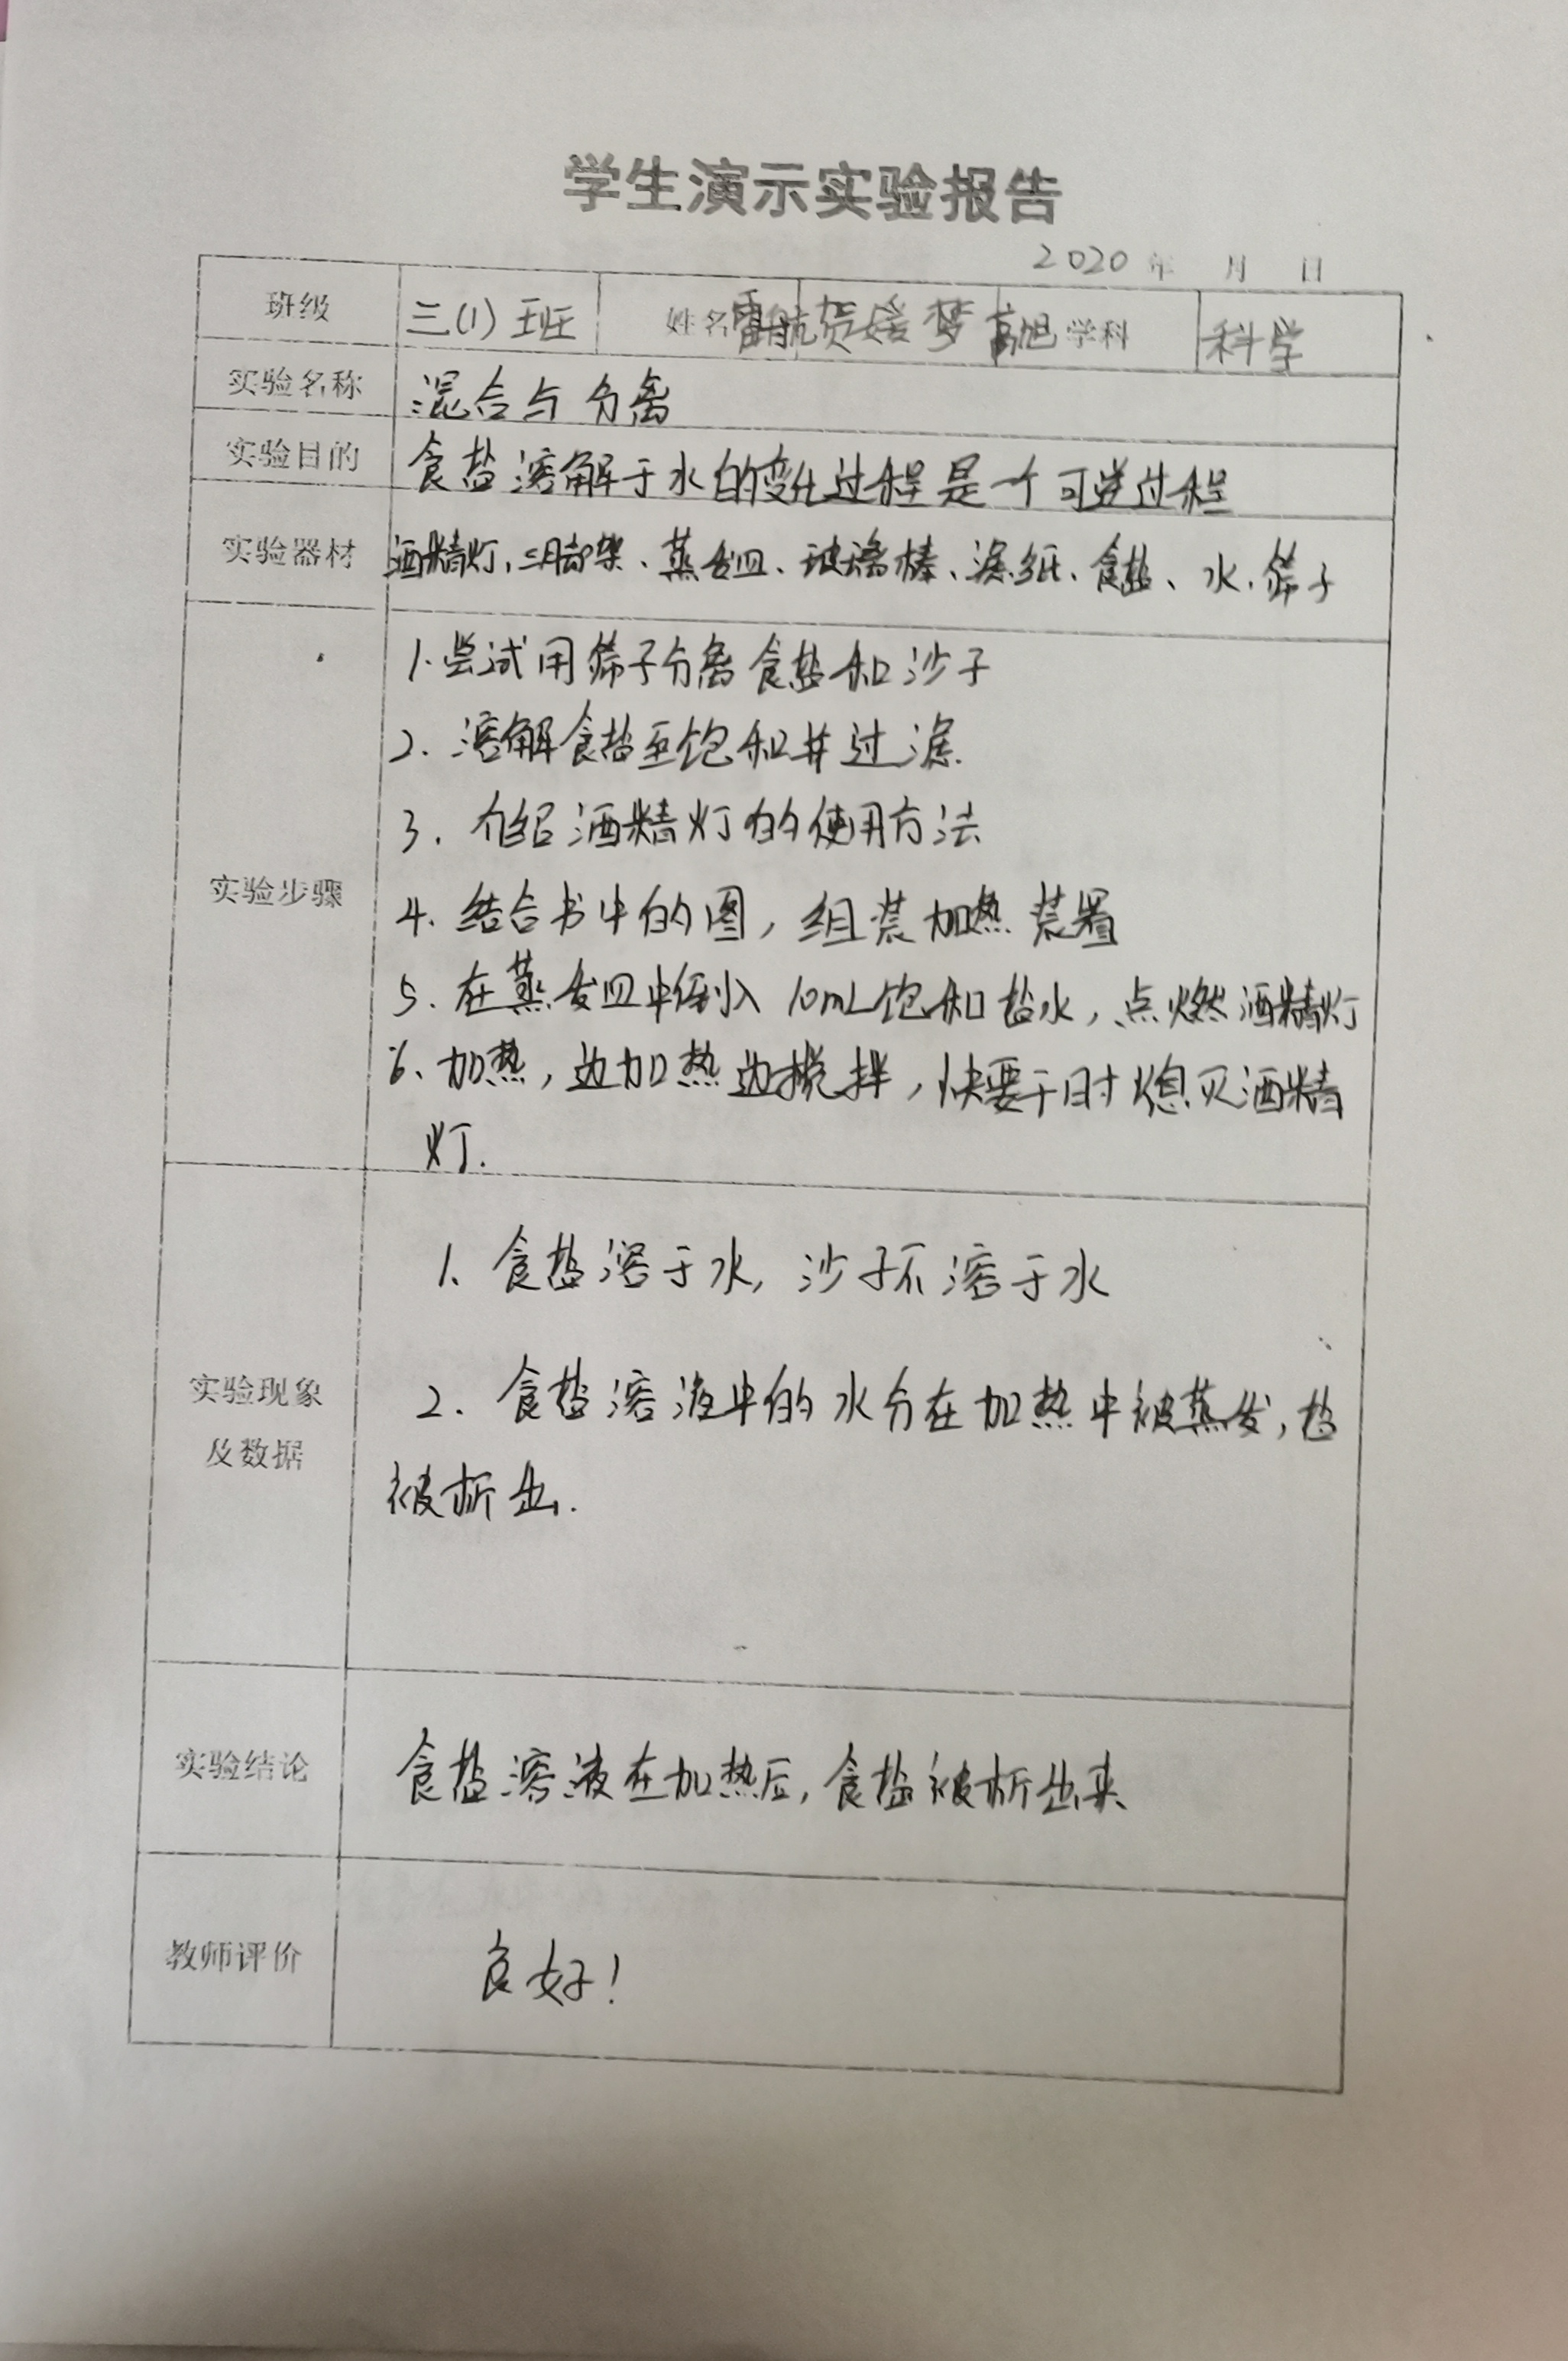 学生演示实验报告
2020 年 月 日
班级 三(1)班 姓名 雷航 贺媛梦 高旭 学科 科学
实验名称 混合与分离
实验目的 食盐溶解于水的变化过程是一个可逆过程
实验器材 酒精灯、三脚架、蒸发皿、玻璃棒、滤纸、食盐、水、筛子
1.尝试用筛子分离食盐和沙子
2.溶解食盐至饱和并过滤.
3.介绍酒精灯的使用方法
实验步骤
4.结合书中的图,组装加热装置
5.在蒸发皿中倒入10mL饱和盐水,点燃酒精灯
6、加热,边加热边搅拌,快要干时熄灭酒精
灯.
1、食盐溶于水,沙子不溶于水
实验现象
及数据
2.食盐溶液中的水分在加热中被蒸发,盐
被析出.
实验结论 食盐溶液在加热后,食盐被析出来
教师评价 良好!